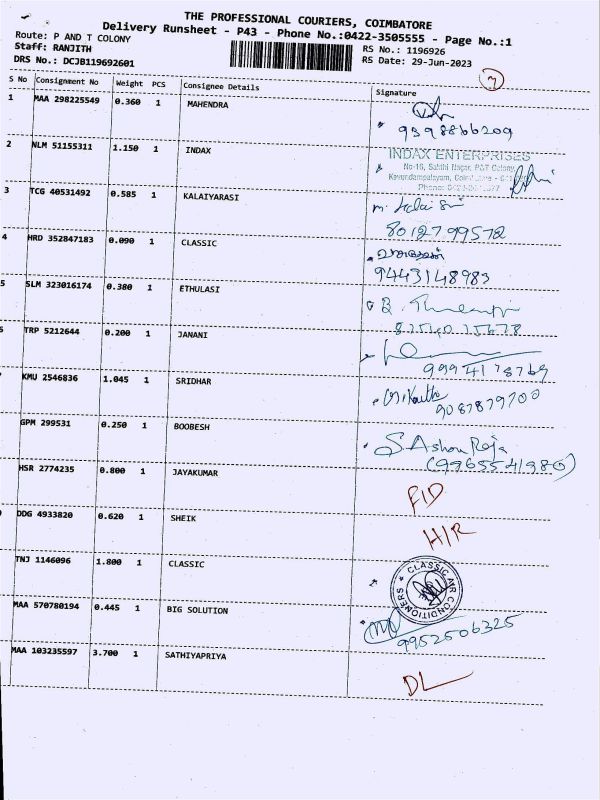 THE PROFESSIONAL COURIERS, COIMBATORE
Delivery Runsheet - P43 - Phone No.:0422-3505555 - Page No.:1
Route: P AND T COLONY
Staff: RANJITH
RS No.: 1196926
DRS No.: DCJB119692601
RS Date: 29-Jun-2023
S No Consignment No Weight PCS Consignee Details Signature
1 MAA 298225549 0.360 1 MAHENDRA
9398866209
2 NLM 51155311 1.150 1 INDAX
INDAX ENTERPRISES
No-16, Sakthi Nagar, P&T Colony,
3 TCG 40531492 0.585 1 KALAIYARASI
8012799578
4 HRD 352847183 0.090 1 CLASSIC
9443148983
5 SLM 323016174 0.380 1 ETHULASI
TRP 5212644 0.200 1 JANANI
KMU 2546836 1.045 1 SRIDHAR
9087879700
GPM 299531 0.250 1 BOOBESH
S.Ashou Roja
(9965541980)
HSR 2774235 0.800 1 JAYAKUMAR
FID
DDG 4933820 0.620 1 SHEIK
H/R
TNJ 1146096 1.800 1 CLASSIC
CLASSIC AIR CONDITIONERS
MAA 570780194 0.445 1 BIG SOLUTION
9952506325
MAA 103235597 3.700 1 SATHIYAPRIYA
DL